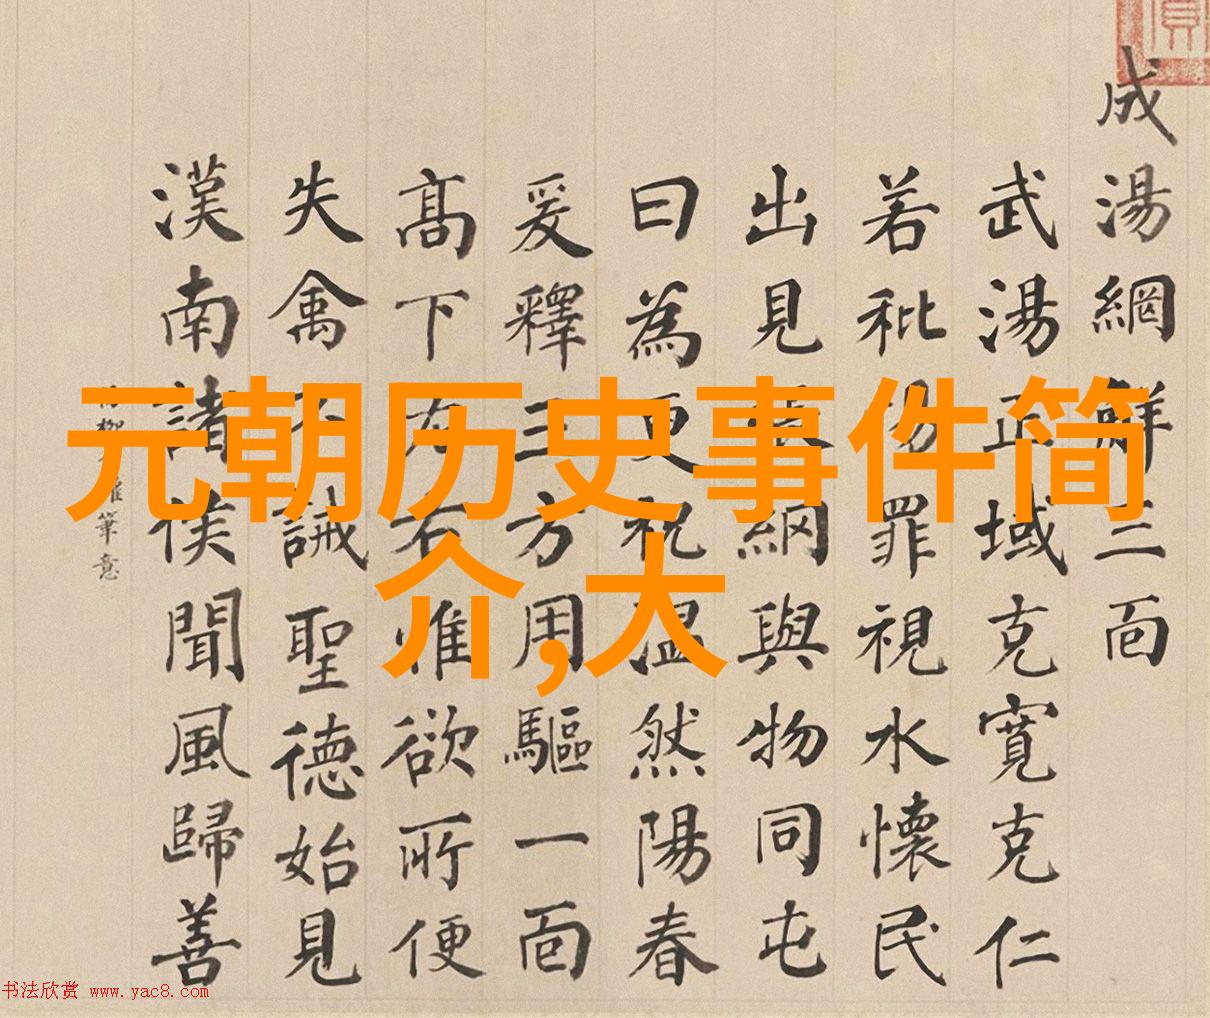 元朝历史事件简
介,大
成湯網三面
武湯正域克寬克仁
若秕罪視水懷民
出見張網與物同屯
曰為更祝温然陽春
爰釋三方用驅一面
髙下左右惟欲所便
失禽不誡聖德始見
漢南諸侯聞風歸善
柳筆意
书法欣赏 www.yac8.com